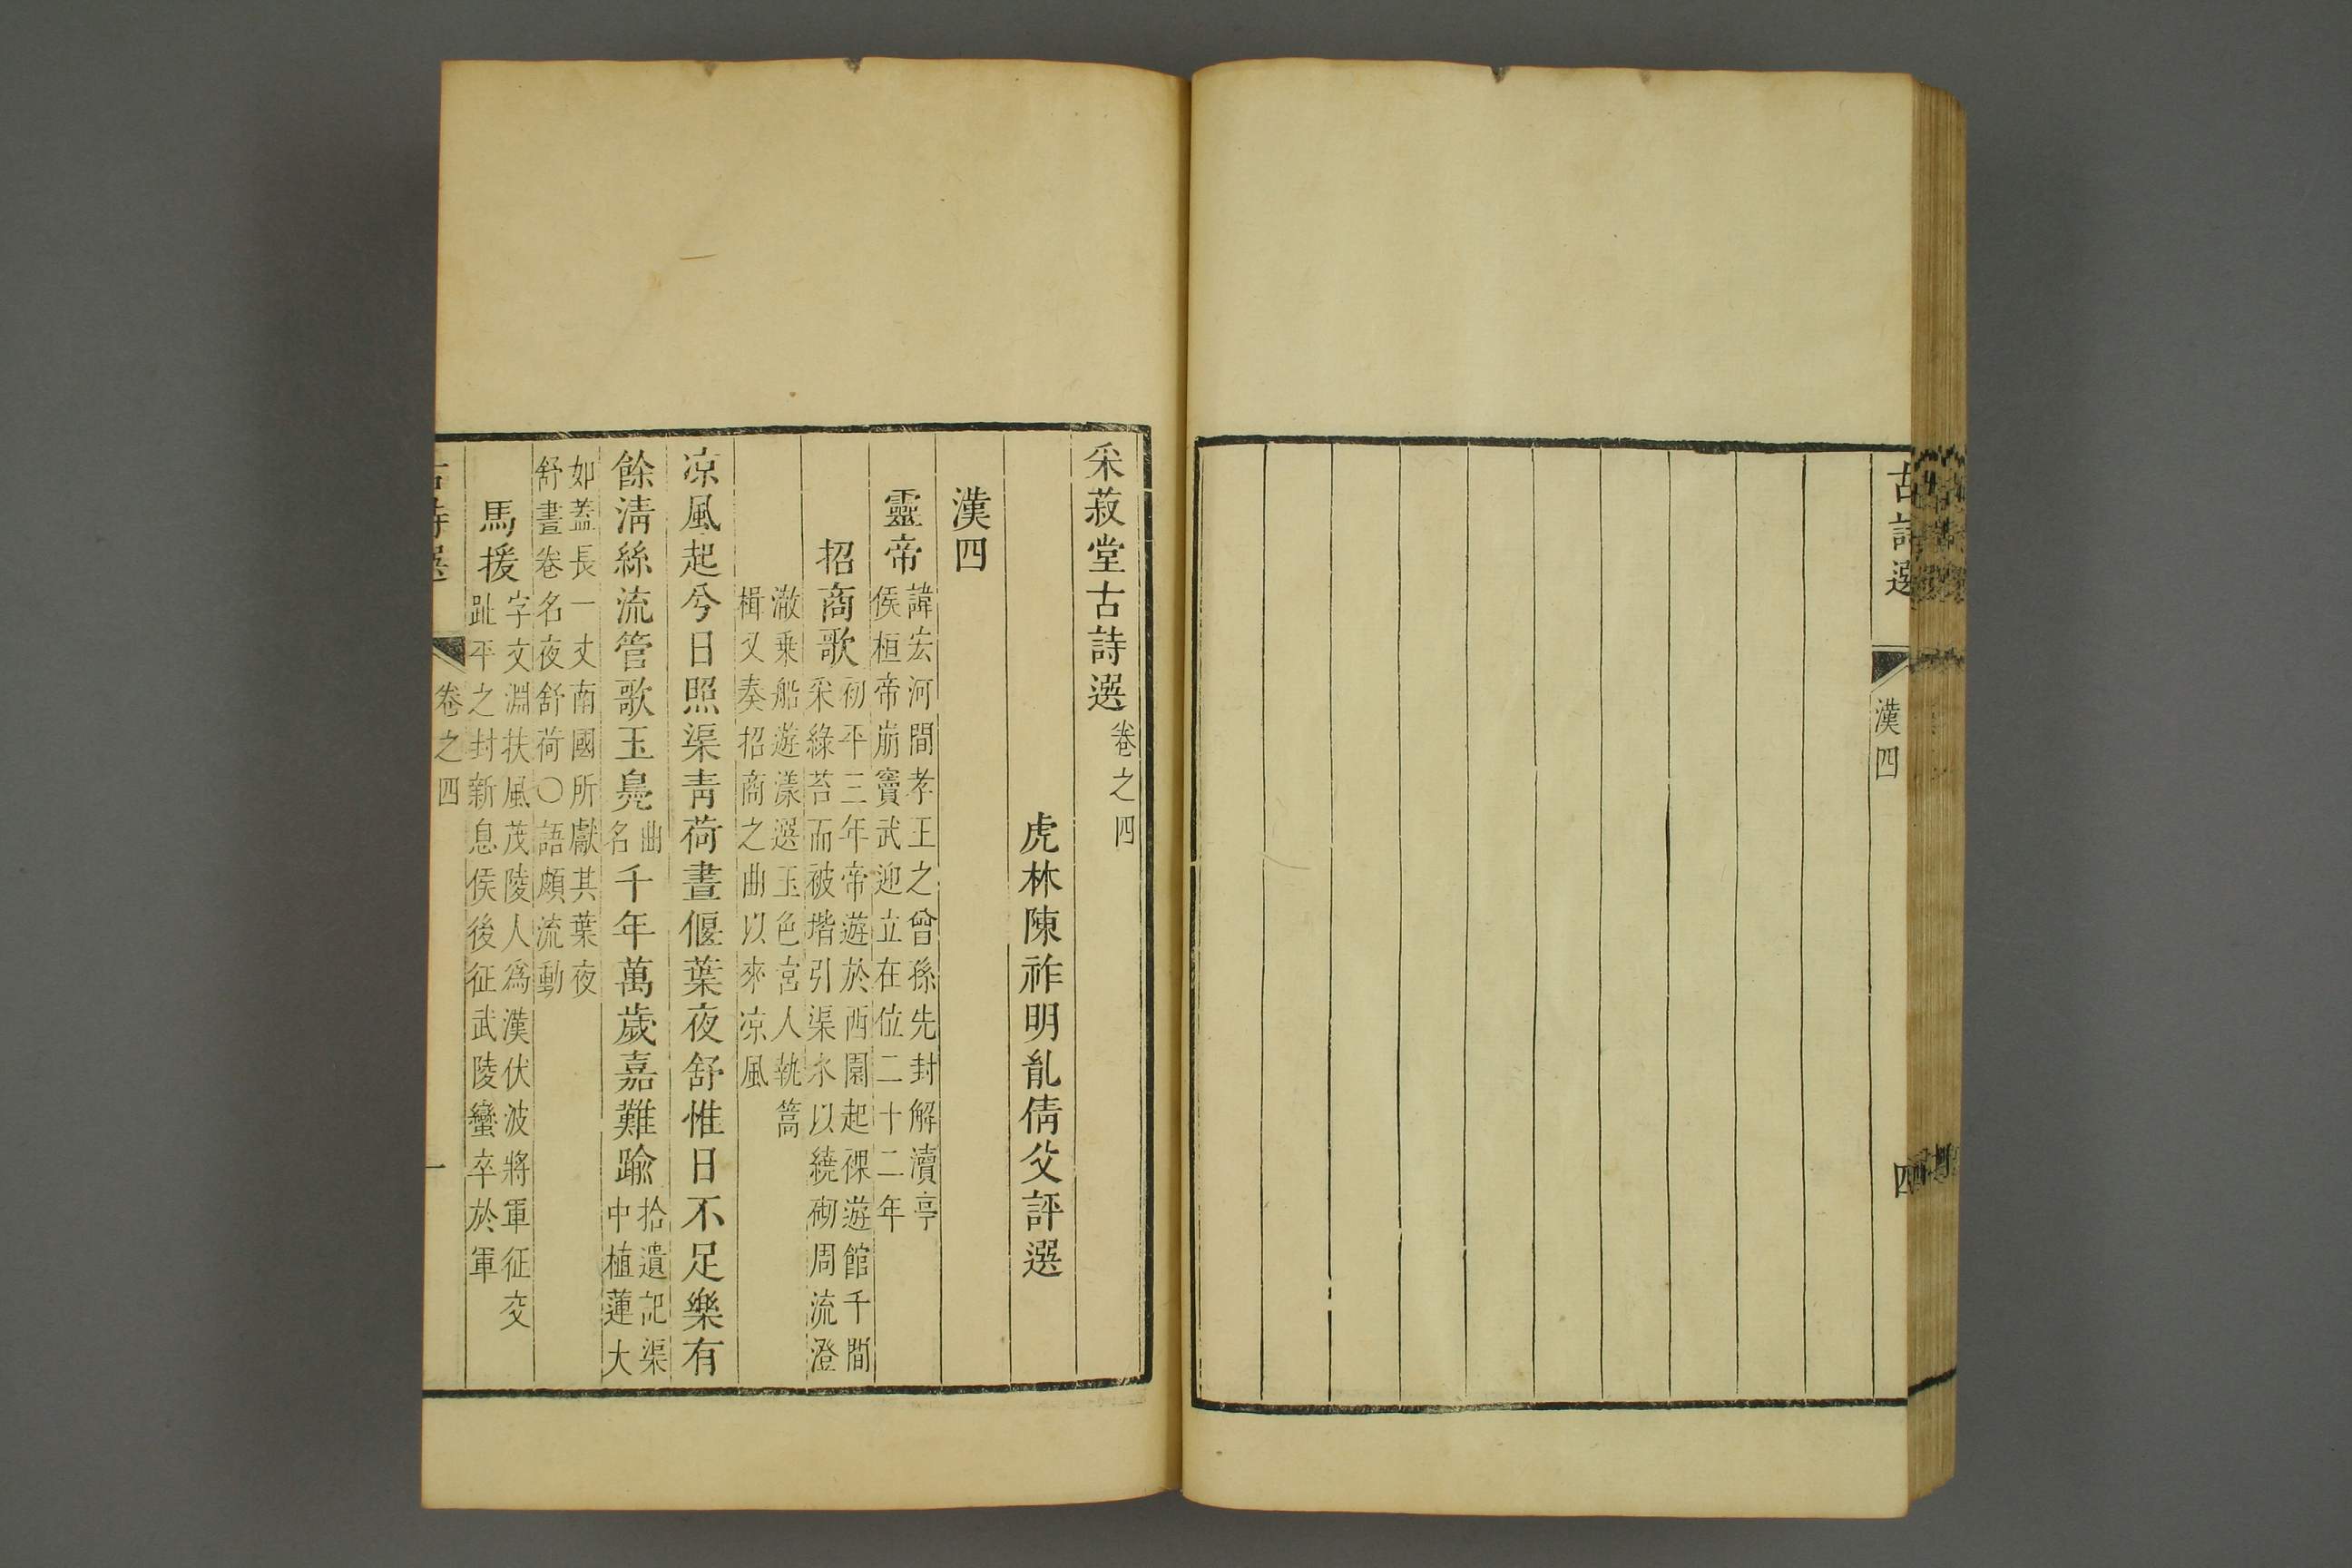 古詩選
漢四
四
采菽堂古詩選卷之四
虎林陳祚明胤倩父評選
漢四
靈帝
諱宏河間孝王之曾孫先封解瀆亭
侯桓帝崩竇武迎立在位二十二年
招商歌
初平三年帝遊於西園起裸遊館千間
采綠苔而被堦引渠水以繞砌周流澄
澈乗船遊漾選玉色宮人執篙
楫又奏招商之曲以來凉風
凉風起兮日照渠青荷晝偃葉夜舒惟日不足樂有
餘淸絲流管歌玉鳧曲名千年萬歲嘉難踰
拾遺記渠
中植蓮大
如葢長一丈南國所獻其葉夜
舒晝卷名夜舒荷〇語頗流動
馬援
字文淵扶風茂陵人爲漢伏波將軍征交
趾平之封新息侯後征武陵蠻卒於軍
古詩選
卷之四
一